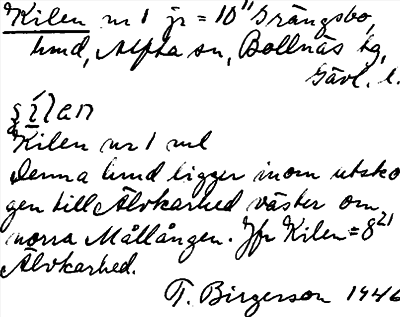 Kilen nr 1 jr = 10" Grängsbo,
lund, Alfta sn, Bollnäs tg,
Gävl. l.
Kilen nr 1 ml
Denna lund ligger inom utsko
gen till Älvkarhed väster om
norra Mållången. Jfr Kilen = 8 21
Älvkarhed.
T. Birgerson 1946